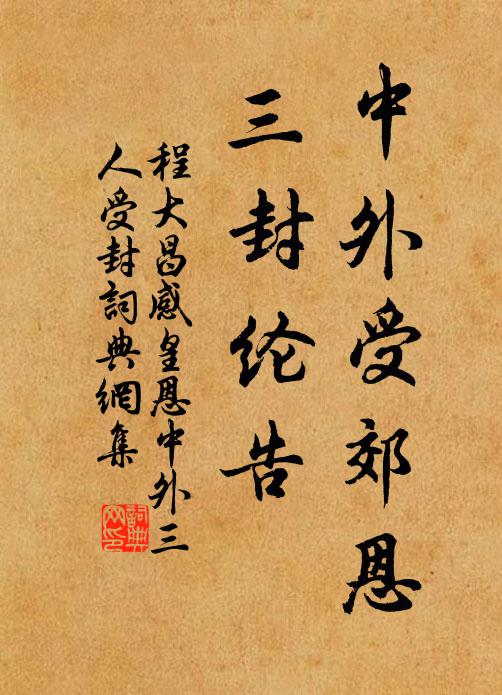 中外受郊恩
三封纶告
程大昌感皇恩中外三
人受封詞典網集
詞典
网印